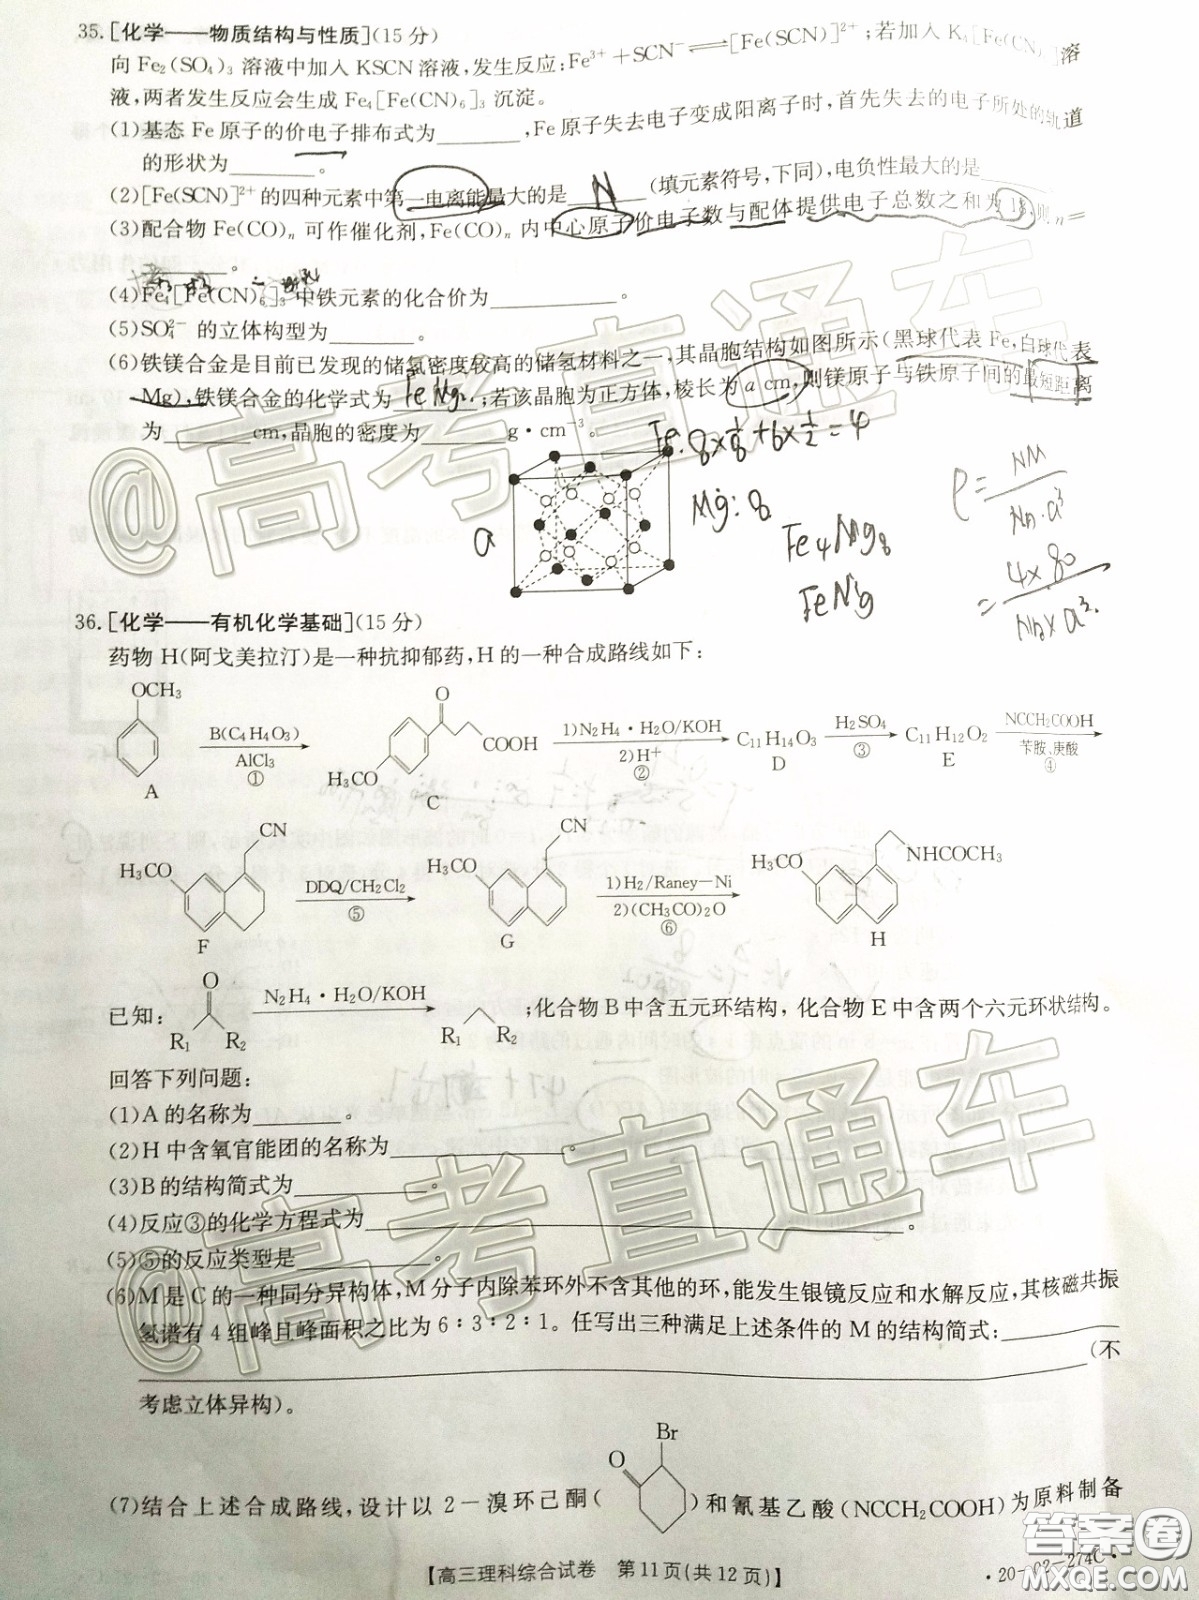 35.[化学——物质结构与性质](15分)
向Fe₂(SO₄)₃溶液中加入KSCN溶液,发生反应:Fe³⁺+SCN⁻⇌[Fe(SCN)]²⁺;若加入K₄[Fe(CN)₆]溶
液,两者发生反应会生成Fe₄[Fe(CN)₆]₃沉淀。
(1)基态Fe原子的价电子排布式为______,Fe原子失去电子变成阳离子时,首先失去的电子所处的轨道
的形状为______。
(2)[Fe(SCN)]²⁺的四种元素中第一电离能最大的是 N (填元素符号,下同),电负性最大的是______
(3)配合物Fe(CO)ₙ可作催化剂,Fe(CO)ₙ内中心原子价电子数与配体提供电子总数之和为18,则n=
______。
(4)Fe₄[Fe(CN)₆]₃中铁元素的化合价为______。
(5)SO₄²⁻的立体构型为______。
(6)铁镁合金是目前已发现的储氢密度较高的储氢材料之一,其晶胞结构如图所示(黑球代表Fe,白球代表
Mg),铁镁合金的化学式为 FeMg₂ ;若该晶胞为正方体,棱长为a cm,则镁原子与铁原子间的最短距离
为______cm,晶胞的密度为______g·cm⁻³。
Fe:8×1/8+6×1/2=4
Mg:8
Fe₄Mg₈
a
ρ=NM/(NA·a³)
=4×80/(NA×a³)
36.[化学——有机化学基础](15分)
药物H(阿戈美拉汀)是一种抗抑郁药,H的一种合成路线如下:
OCH₃
A
B(C₄H₄O₃)
AlCl₃
①
O
COOH
H₃CO
C
1)N₂H₄·H₂O/KOH
2)H⁺
②
C₁₁H₁₄O₃
D
H₂SO₄
③
C₁₁H₁₂O₂
E
NCCH₂COOH
苄胺、庚酸
④
CN
H₃CO
F
DDQ/CH₂Cl₂
⑤
CN
H₃CO
G
1)H₂/Raney—Ni
2)(CH₃CO)₂O
⑥
NHCOCH₃
H₃CO
H
已知:
O
R₁ R₂
N₂H₄·H₂O/KOH
R₁ R₂
;化合物B中含五元环结构,化合物E中含两个六元环状结构。
回答下列问题:
(1)A的名称为______。
(2)H中含氧官能团的名称为______。
(3)B的结构简式为______。
(4)反应③的化学方程式为______。
(5)⑤的反应类型是______。
(6)M是C的一种同分异构体,M分子内除苯环外不含其他的环,能发生银镜反应和水解反应,其核磁共振
氢谱有4组峰且峰面积之比为6∶3∶2∶1。任写出三种满足上述条件的M的结构简式:______
______(不
考虑立体异构)。
Br
O
(7)结合上述合成路线,设计以2-溴环己酮( )和氰基乙酸(NCCH₂COOH)为原料制备
【高三理科综合试卷 第11页(共12页)】
·20-02-274C·
@高考直通车
@高考直通车
答案圈
MXQE.COM